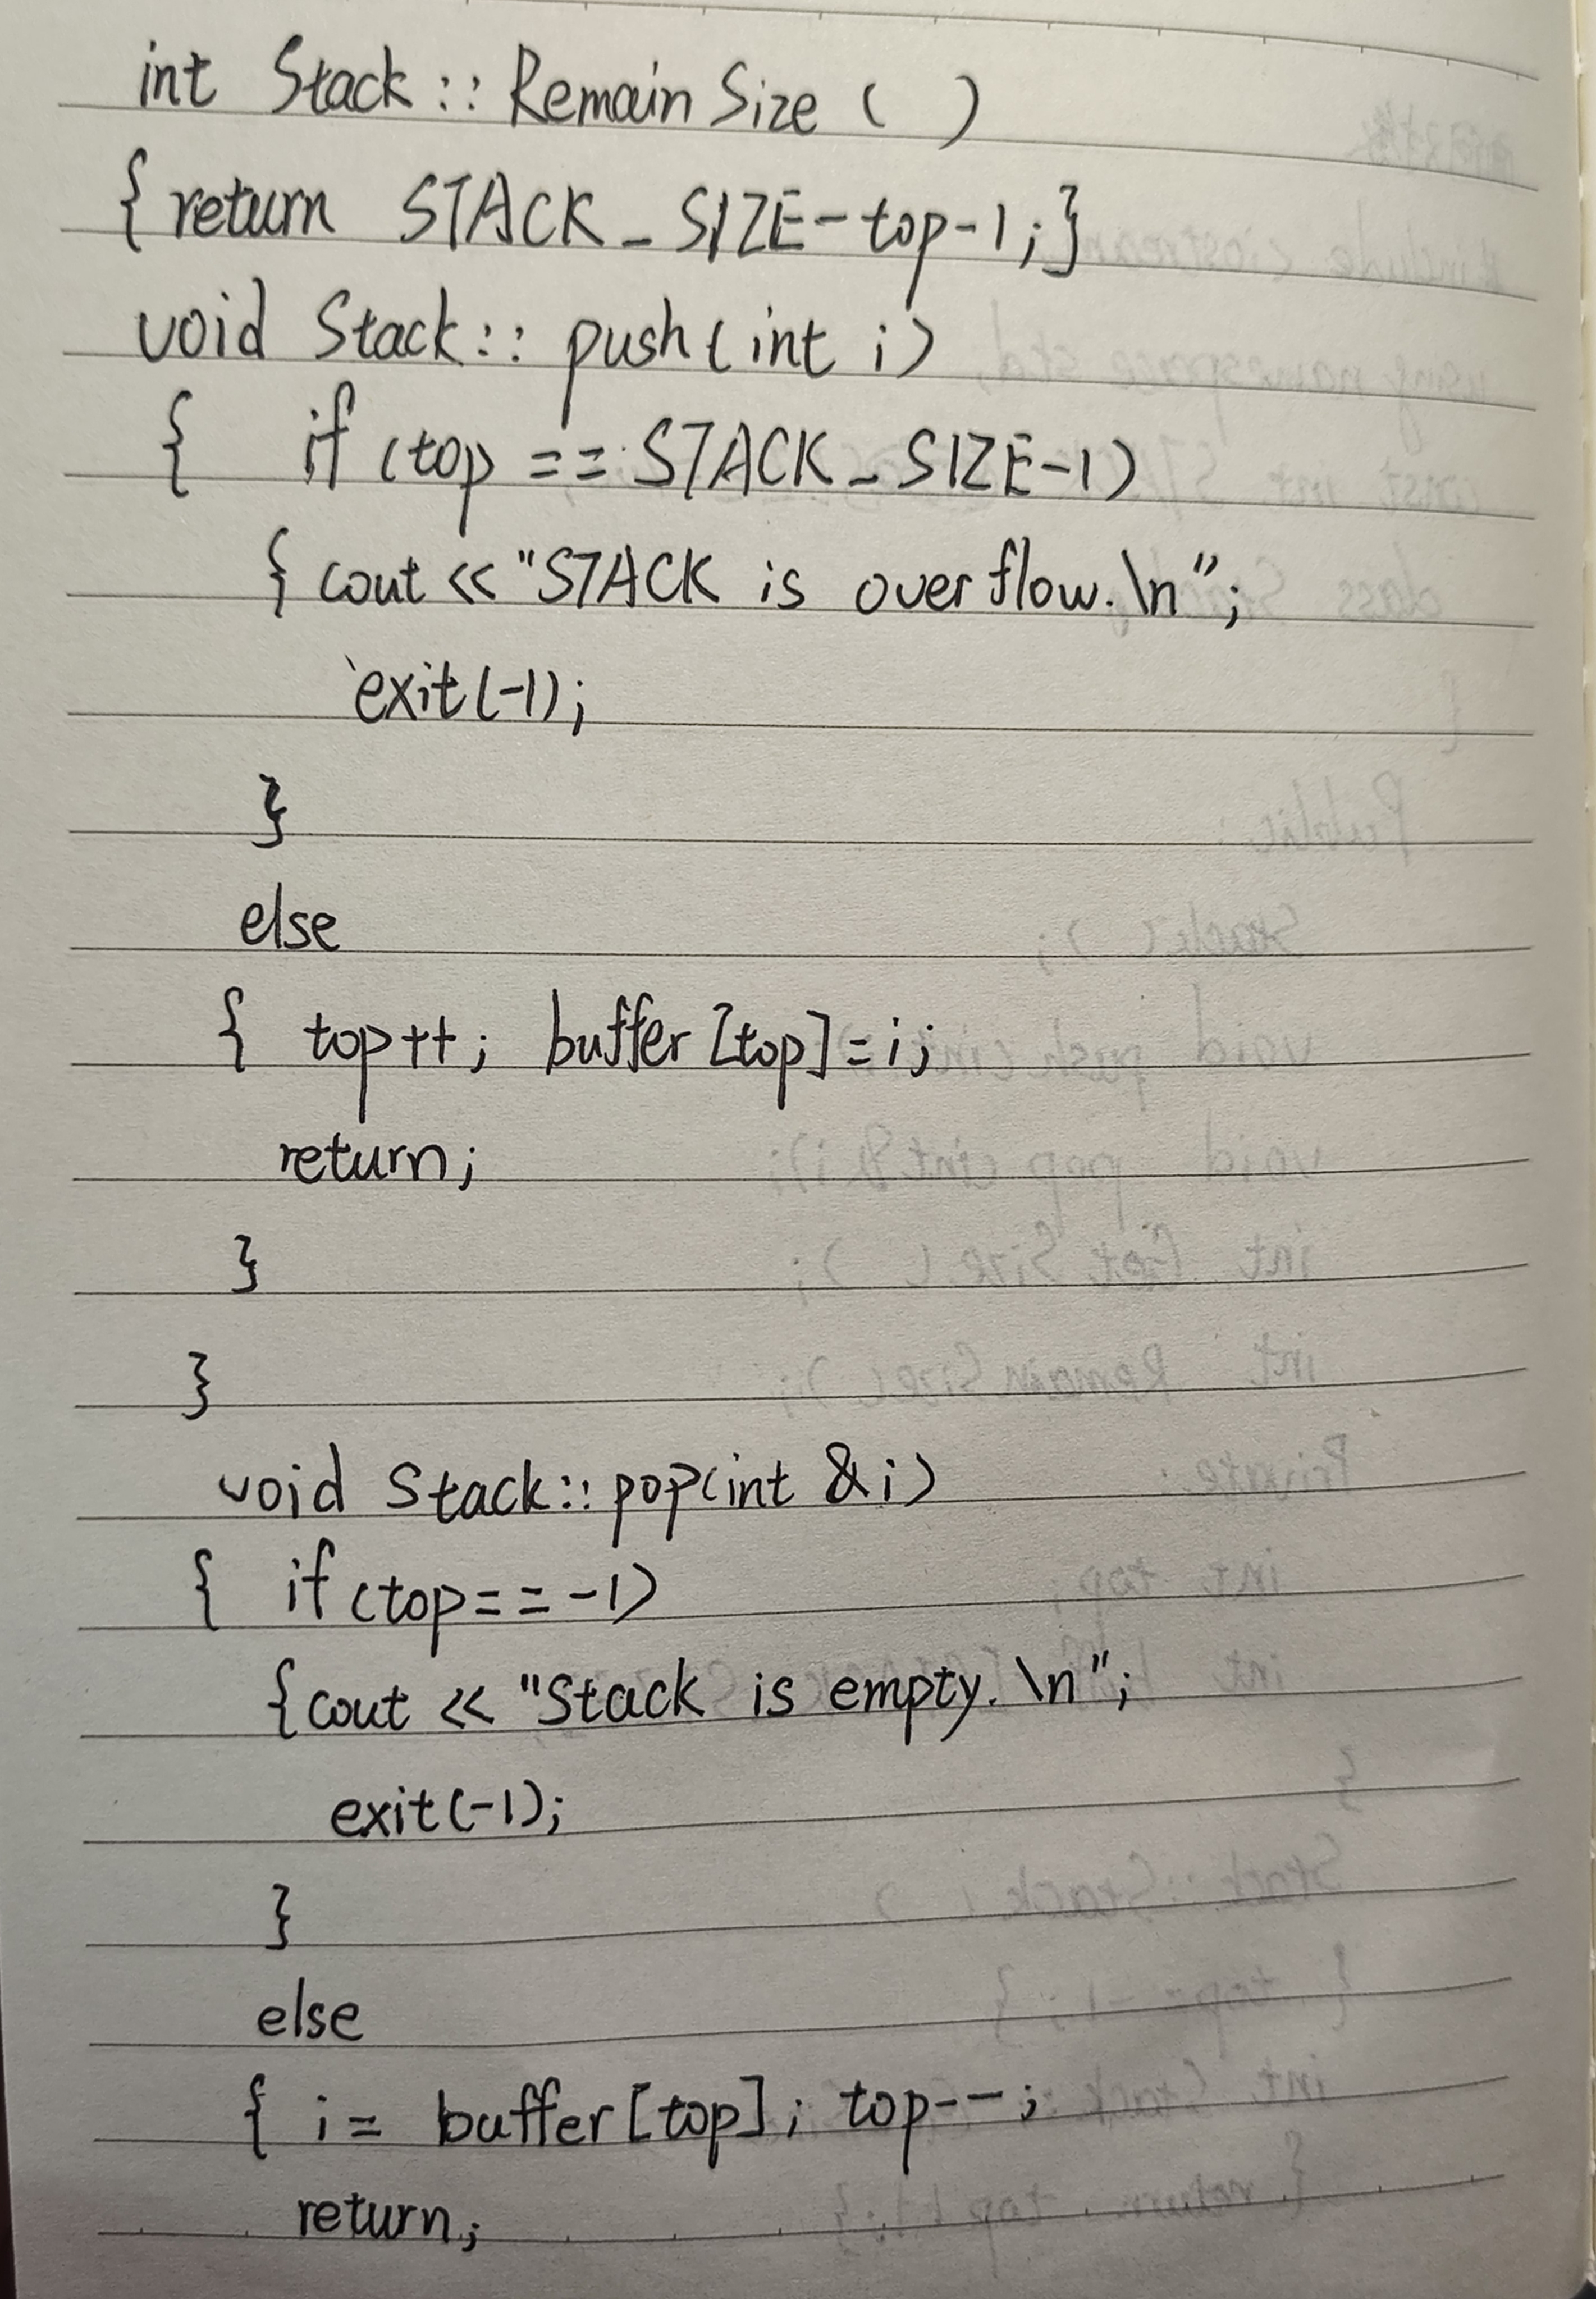 int Stack::RemainSize( )
{return STACK_SIZE-top-1;}
void Stack::push(int i)
{ if (top == STACK_SIZE-1)
{ cout << "STACK is overflow.\n";
exit(-1);
}
else
{ top++; buffer[top]=i;
return;
}
}
void Stack::pop(int &i)
{ if (top==-1)
{cout << "Stack is empty.\n";
exit(-1);
}
else
{ i= buffer[top]; top--;
return;